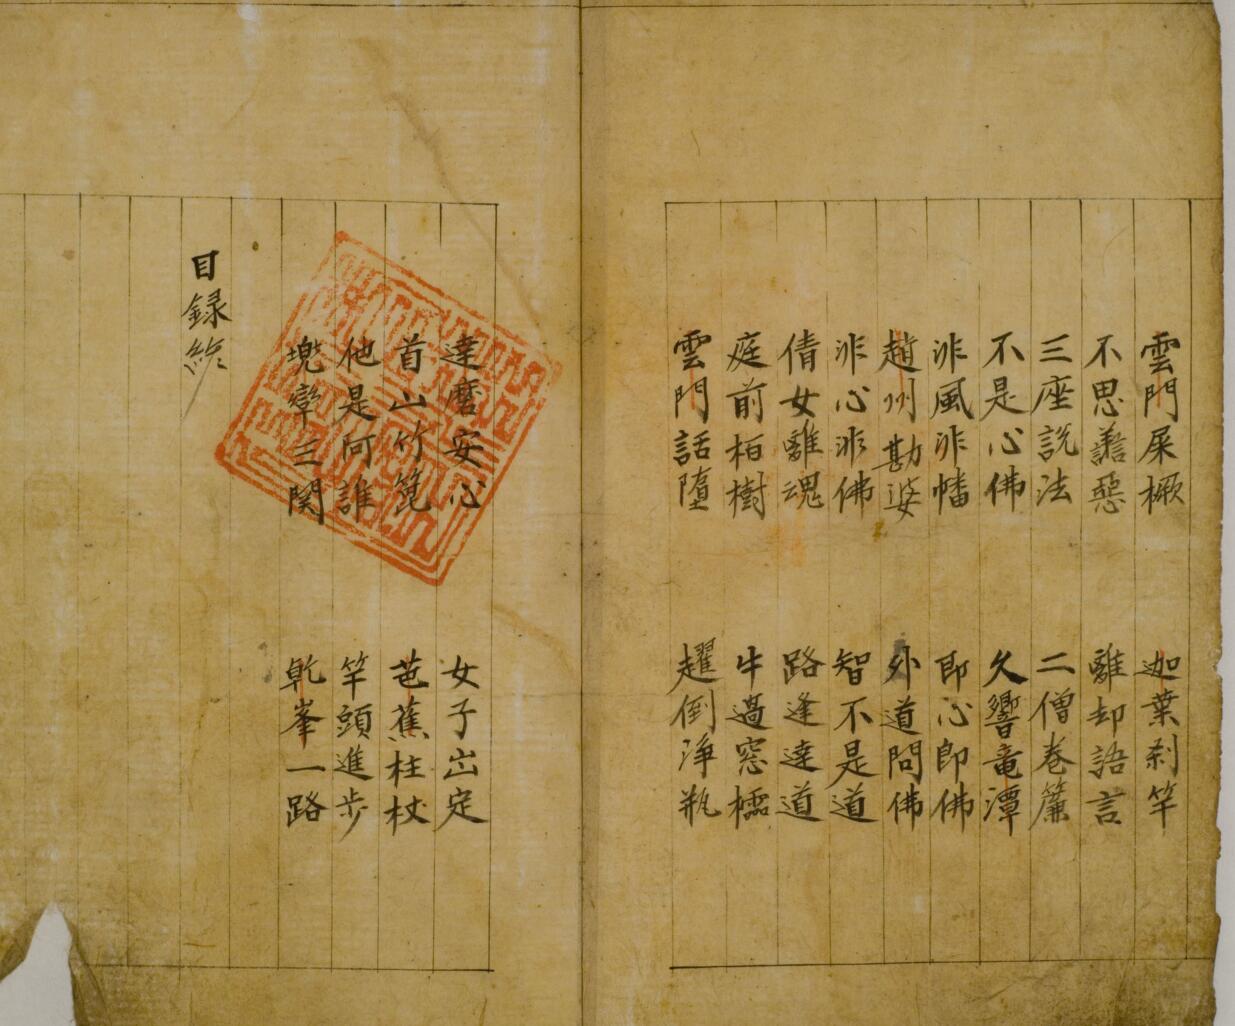 雲門屎橛　迦葉刹竿
不思譱惡　離却語言
三座説法　二僧巻簾
不是心佛　久響竜潭
非風非幡　即心即佛
趙州勘婆　外道問佛
非心非佛　智不是道
倩女離魂　路逢達道
庭前栢樹　牛過窓櫺
雲門話墮　趯倒淨瓶
達磨安心　女子出定
首山竹篦　芭蕉柱杖
他是阿誰　竿頭進歩
兠率三関　乾峯一路
目録終